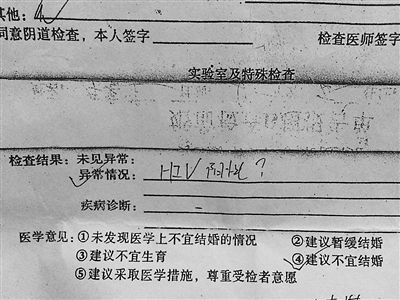 其他:
同意阴道检查,本人签字
检查医师签字
实验室及特殊检查
检查结果:未见异常:
异常情况:
疾病诊断:
医学意见:①未发现医学上不宜结婚的情况 ②建议暂缓结婚
③建议不宜生育 ④建议不宜结婚
⑤建议采取医学措施,尊重受检者意愿